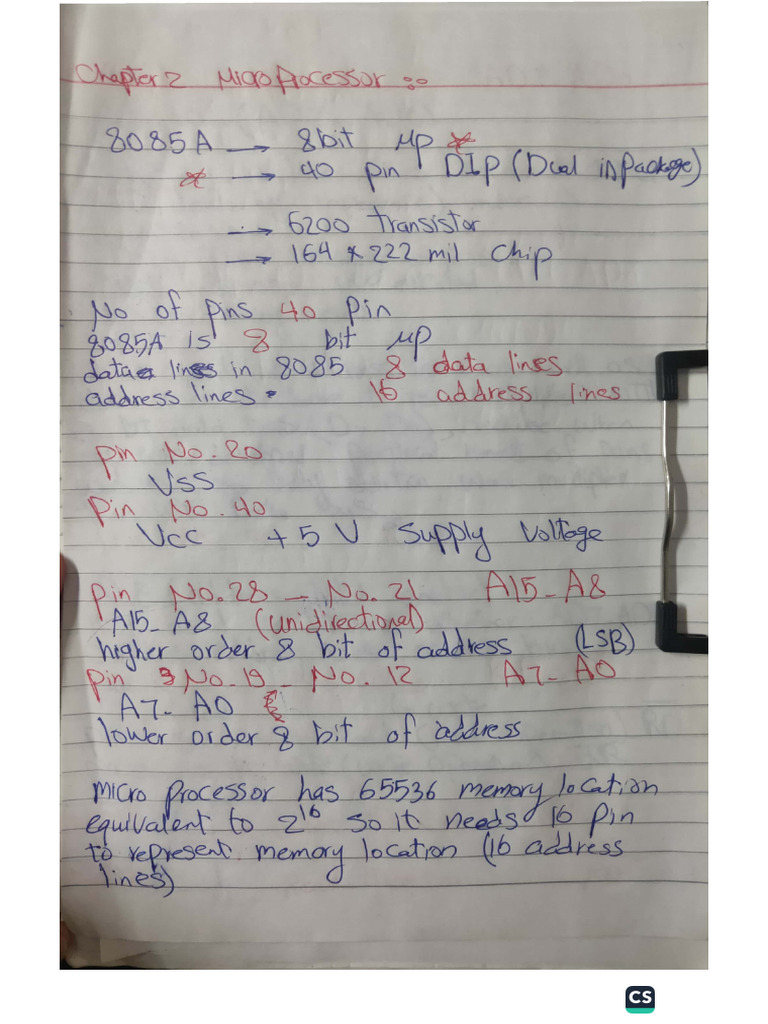 Chapter 2 Microprocessor :-
8085A → 8bit μp *
* → 40 pin DIP (Dual in package)
→ 6200 transistor
→ 164 x 222 mil chip
No of pins 40 pin
8085A is 8 bit μp
data lines in 8085 8 data lines
address lines. 16 address lines
pin No. 20
Vss
pin No. 40
Vcc +5 V supply voltage
pin No. 28 - No. 21 A15-A8
A15-A8 (unidirectional)
higher order 8 bit of address (LSB)
pin No. 19 - No. 12 A7-A0
A7-A0
lower order 8 bit of address
micro processor has 65536 memory location
equivalent to 2^16 so it needs 16 pin
to represent memory location (16 address
lines)
CS